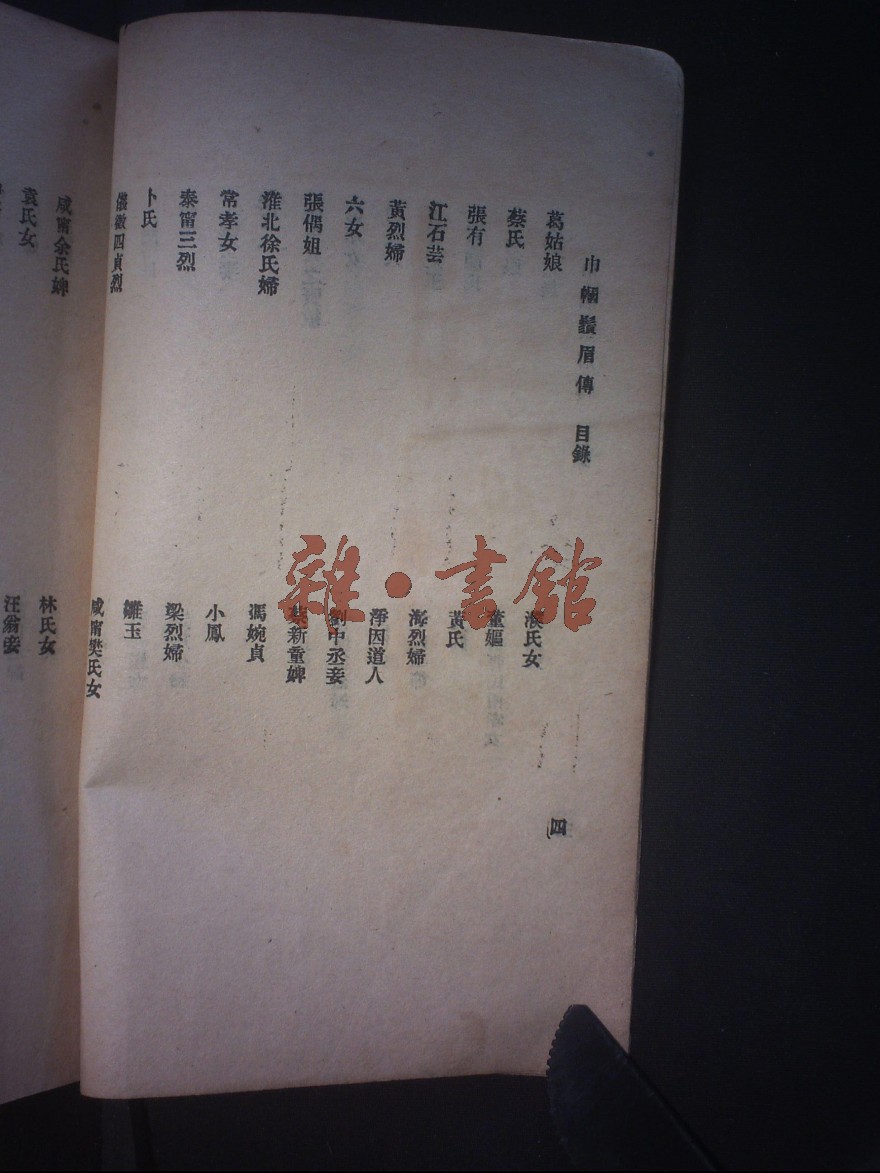 巾幗鬚眉傳 目錄 四
葛姑娘 濮氏女
蔡氏 董嫗
張有 黃氏
江石芸 海烈婦
黃烈婦 淨因道人
六女 劉中丞妾
張偶姐 綦新童婢
淮北徐氏婦 馮婉貞
常孝女 小鳳
泰甯三烈 梁烈婦
卜氏 雛玉
儀徵四貞烈 咸甯樊氏女
咸甯余氏婢 林氏女
袁氏女 汪翁妾
雜·書館